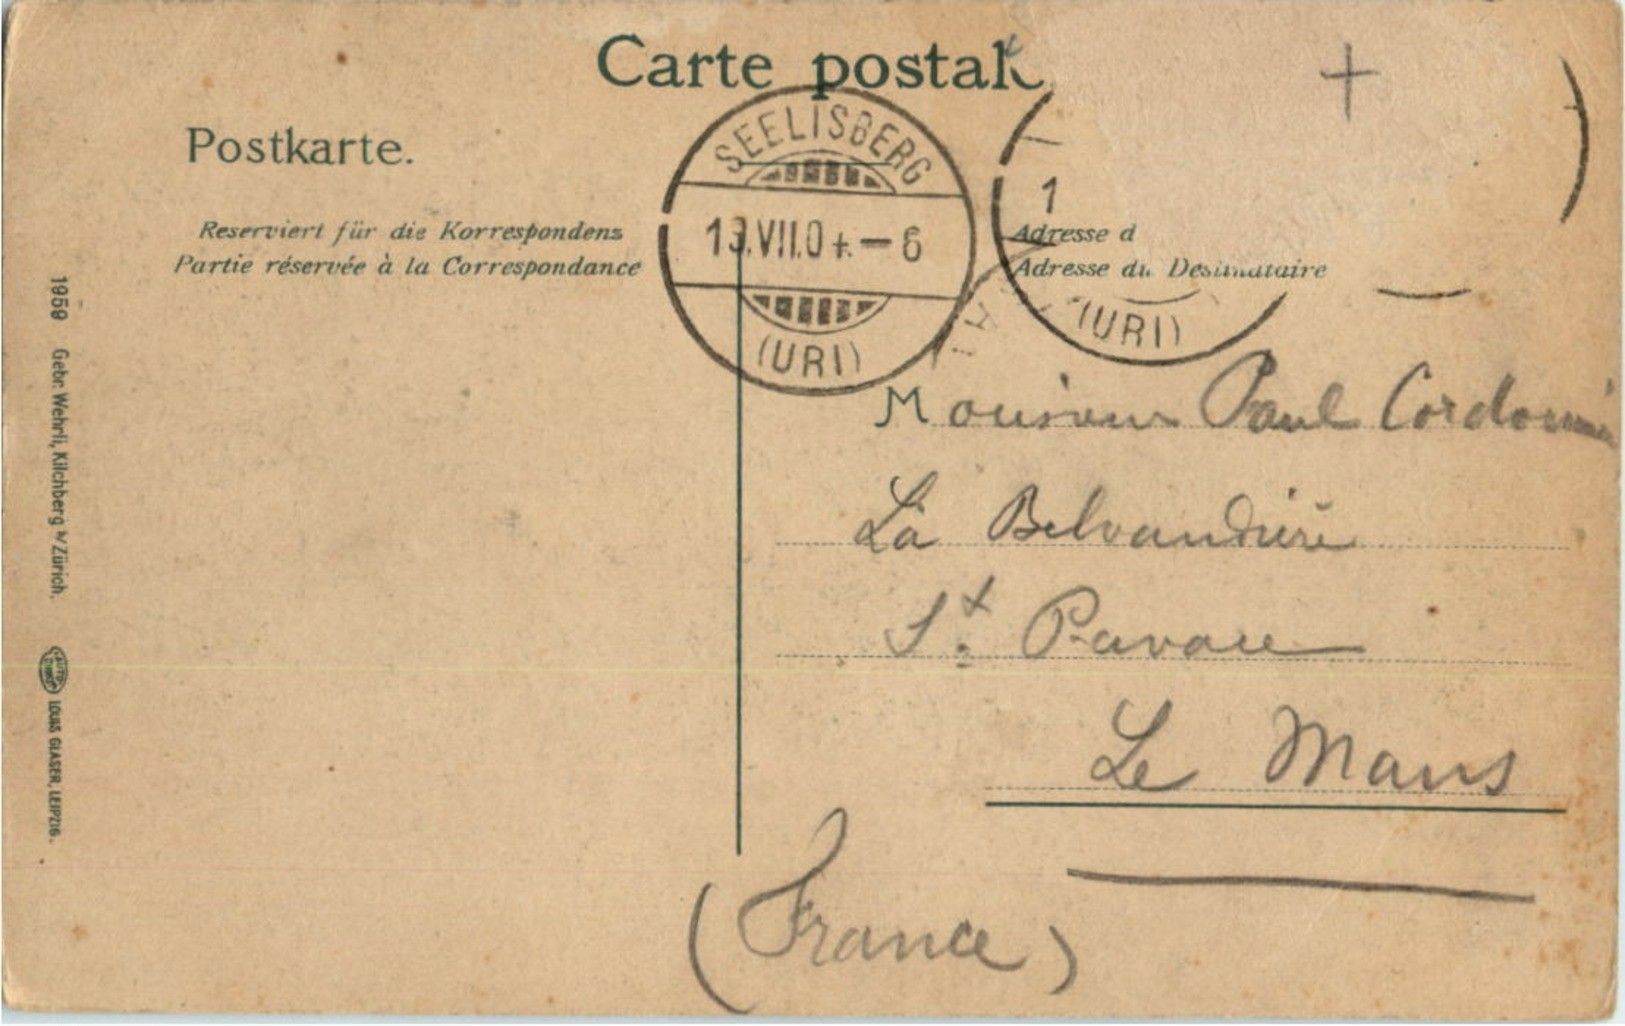 Carte postal
Postkarte.
Reserviert für die Korrespondenz
Partie réservée à la Correspondance
SEELISBERG
VII.04.–6
(URI)
1
Adresse d
Adresse du Destinataire
(URI)
Monsieur Paul
La
St.
Le Mans
(France)
1959 Gebr. Wehrli, Kilchberg b/Zürich.
LOUIS GLASER, LEIPZIG.